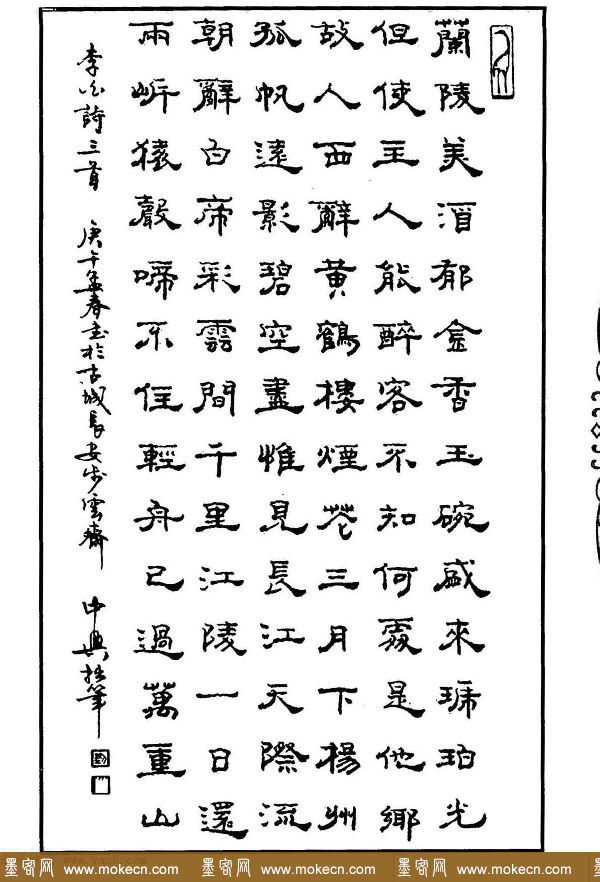 蘭陵美酒郁金香玉碗盛來琥珀光
但使主人能醉客不知何處是他鄉
故人西辭黃鶴樓煙花三月下楊州
孤帆遠影碧空盡惟見長江天際流
朝辭白帝彩雲間千里江陵一日還
兩岸猿聲啼不住輕舟已過萬重山
李白詩三首 庚午孟春書於古城長安步雲齋 中興拙筆
墨客网 www.mokecn.com 墨客网 www.mokecn.com 墨客网 www.mokecn.com